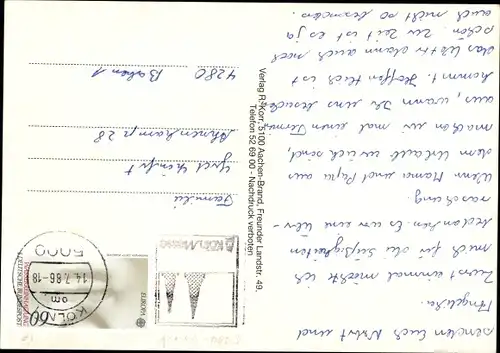 senden Euch Astrid und
Angelika.
Zuerst einmal möchte ich
mich für die Süßigkeiten
bedanken. Es war eine Über-
raschung
Wenn Mama und Papa aus
dem Urlaub zurück sind,
machen wir mal einen Termin
aus, wann Ihr uns besuchen
kommt. Hoffentlich ist
das Wetter dann auch noch
schön. Zur Zeit ist es ja
auch nicht so besonders
Verlag R. Korr, 5100 Aachen-Brand, Freunder Landstr. 49,
Telefon 52 69 00 - Nachdruck verboten
Familie
Ahrenkamp 28
4280 Borken 1
5000
14.7.86-18
KÖLN
DEUTSCHE BUNDESPOST
60
EUROPA